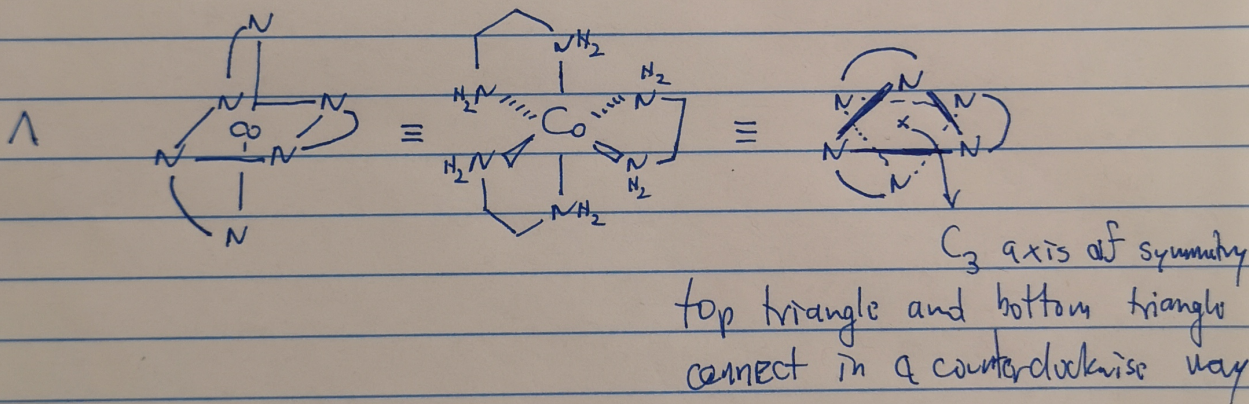 N
NH₂
H₂
N
N
H₂N
N
N
N
N
Λ
Co
≡
Co
≡
N
N
H₂N
N
N
N
H₂
N
N
NH₂
C₃ axis of symmetry
top triangle and bottom triangle
connect in a counterclockwise way